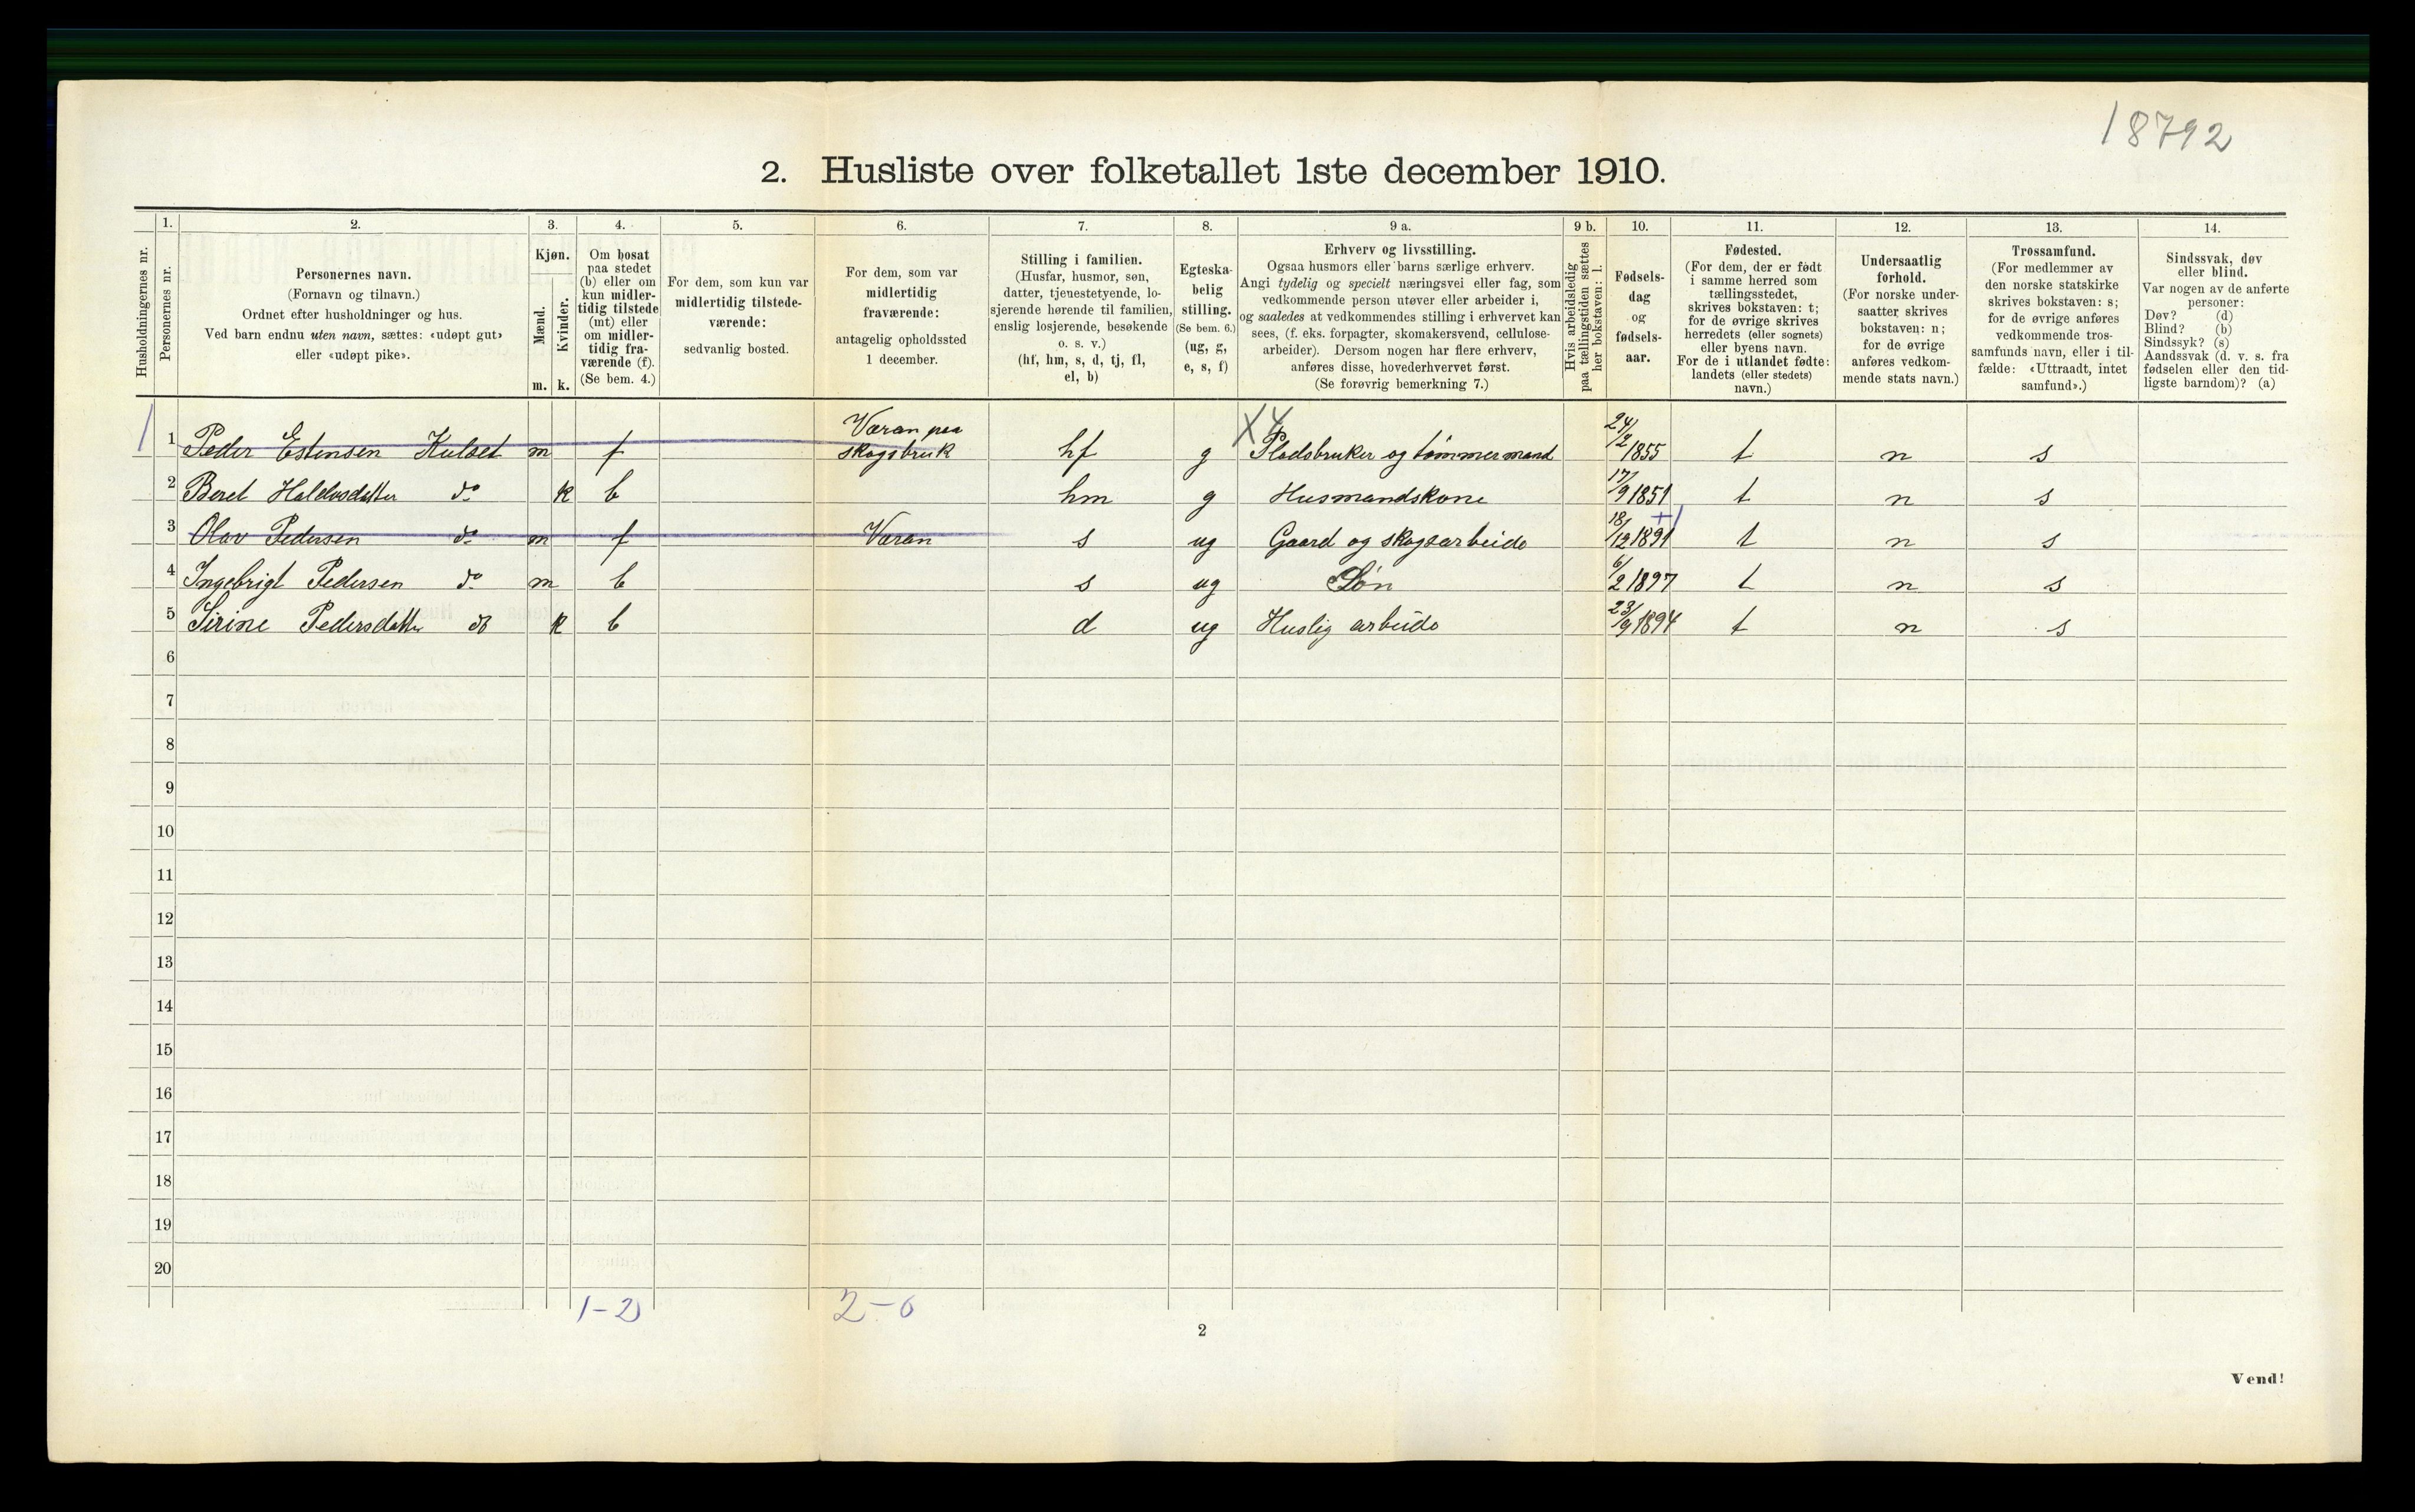 18792
2. Husliste over folketallet 1ste december 1910.
Husholdningernes nr.
1.
Personernes nr.
2.
Personernes navn.
(Fornavn og tilnavn.)
Ordnet efter husholdninger og hus.
Ved barn endnu uten navn, sættes: «udøpt gut»
eller «udøpt pike».
3.
Kjøn.
Mænd.
Kvinder.
m. k.
4.
Om bosat
paa stedet
(b) eller om
kun midler-
tidig tilstede
(mt) eller
om midler-
tidig fra-
værende (f).
(Se bem. 4.)
5.
For dem, som kun var
midlertidig tilstede-
værende:
sedvanlig bosted.
6.
For dem, som var
midlertidig
fraværende:
antagelig opholdssted
1 december.
7.
Stilling i familien.
(Husfar, husmor, søn,
datter, tjenestetyende, lo-
sjerende hørende til familien,
enslig losjerende, besøkende
o. s. v.)
(hf, hm, s, d, tj, fl,
el, b)
8.
Egteska-
belig
stilling.
(Se bem. 6.)
(ug, g,
e, s, f)
9 a.
Erhverv og livsstilling.
Ogsaa husmors eller barns særlige erhverv.
Angi tydelig og specielt næringsvei eller fag, som
vedkommende person utøver eller arbeider i,
og saaledes at vedkommendes stilling i erhvervet kan
sees, (f. eks. forpagter, skomakersvend, cellulose-
arbeider). Dersom nogen har flere erhverv,
anføres disse, hovederhvervet først.
(Se forøvrig bemerkning 7.)
9 b.
Hvis arbeidsledig
paa tællingstiden sættes
her bokstaven: l.
10.
Fødsels-
dag
og
fødsels-
aar.
11.
Fødested.
(For dem, der er født
i samme herred som
tællingsstedet,
skrives bokstaven: t;
for de øvrige skrives
herredets (eller sognets)
eller byens navn.
For de i utlandet fødte:
landets (eller stedets)
navn.)
12.
Undersaatlig
forhold.
(For norske under-
saatter skrives
bokstaven: n;
for de øvrige
anføres vedkom-
mende stats navn.)
13.
Trossamfund.
(For medlemmer av
den norske statskirke
skrives bokstaven: s;
for de øvrige anføres
vedkommende tros-
samfunds navn, eller i til-
fælde: «Uttraadt, intet
samfund».)
14.
Sindssvak, døv
eller blind.
Var nogen av de anførte
personer:
Døv? (d)
Blind? (b)
Sindssyk? (s)
Aandssvak (d. v. s. fra
fødselen eller den tid-
ligste barndom)? (a)
1 1 Peder Estensen Kulset m f Væran paa skogsbruk hf g X4 Pladsbruker og tømmermand 24/2 1855 t n s
2 Beret Haldosdatter do k b hm g Husmandskone 17/9 1851 t n s
3 Olav Pedersen do m f Væran s ug Gaard og skogsarbeide 18/12 1891 t n s
4 Ingebrigt Pedersen do m b s ug Søn 6/2 1897 t n s
5 Sirine Pedersdatter do k b d ug Huslig arbeide 23/9 1894 t n s
6
7
8
9
10
11
12
13
14
15
16
17
18
19
20
1-2 2-0
2
Vend!